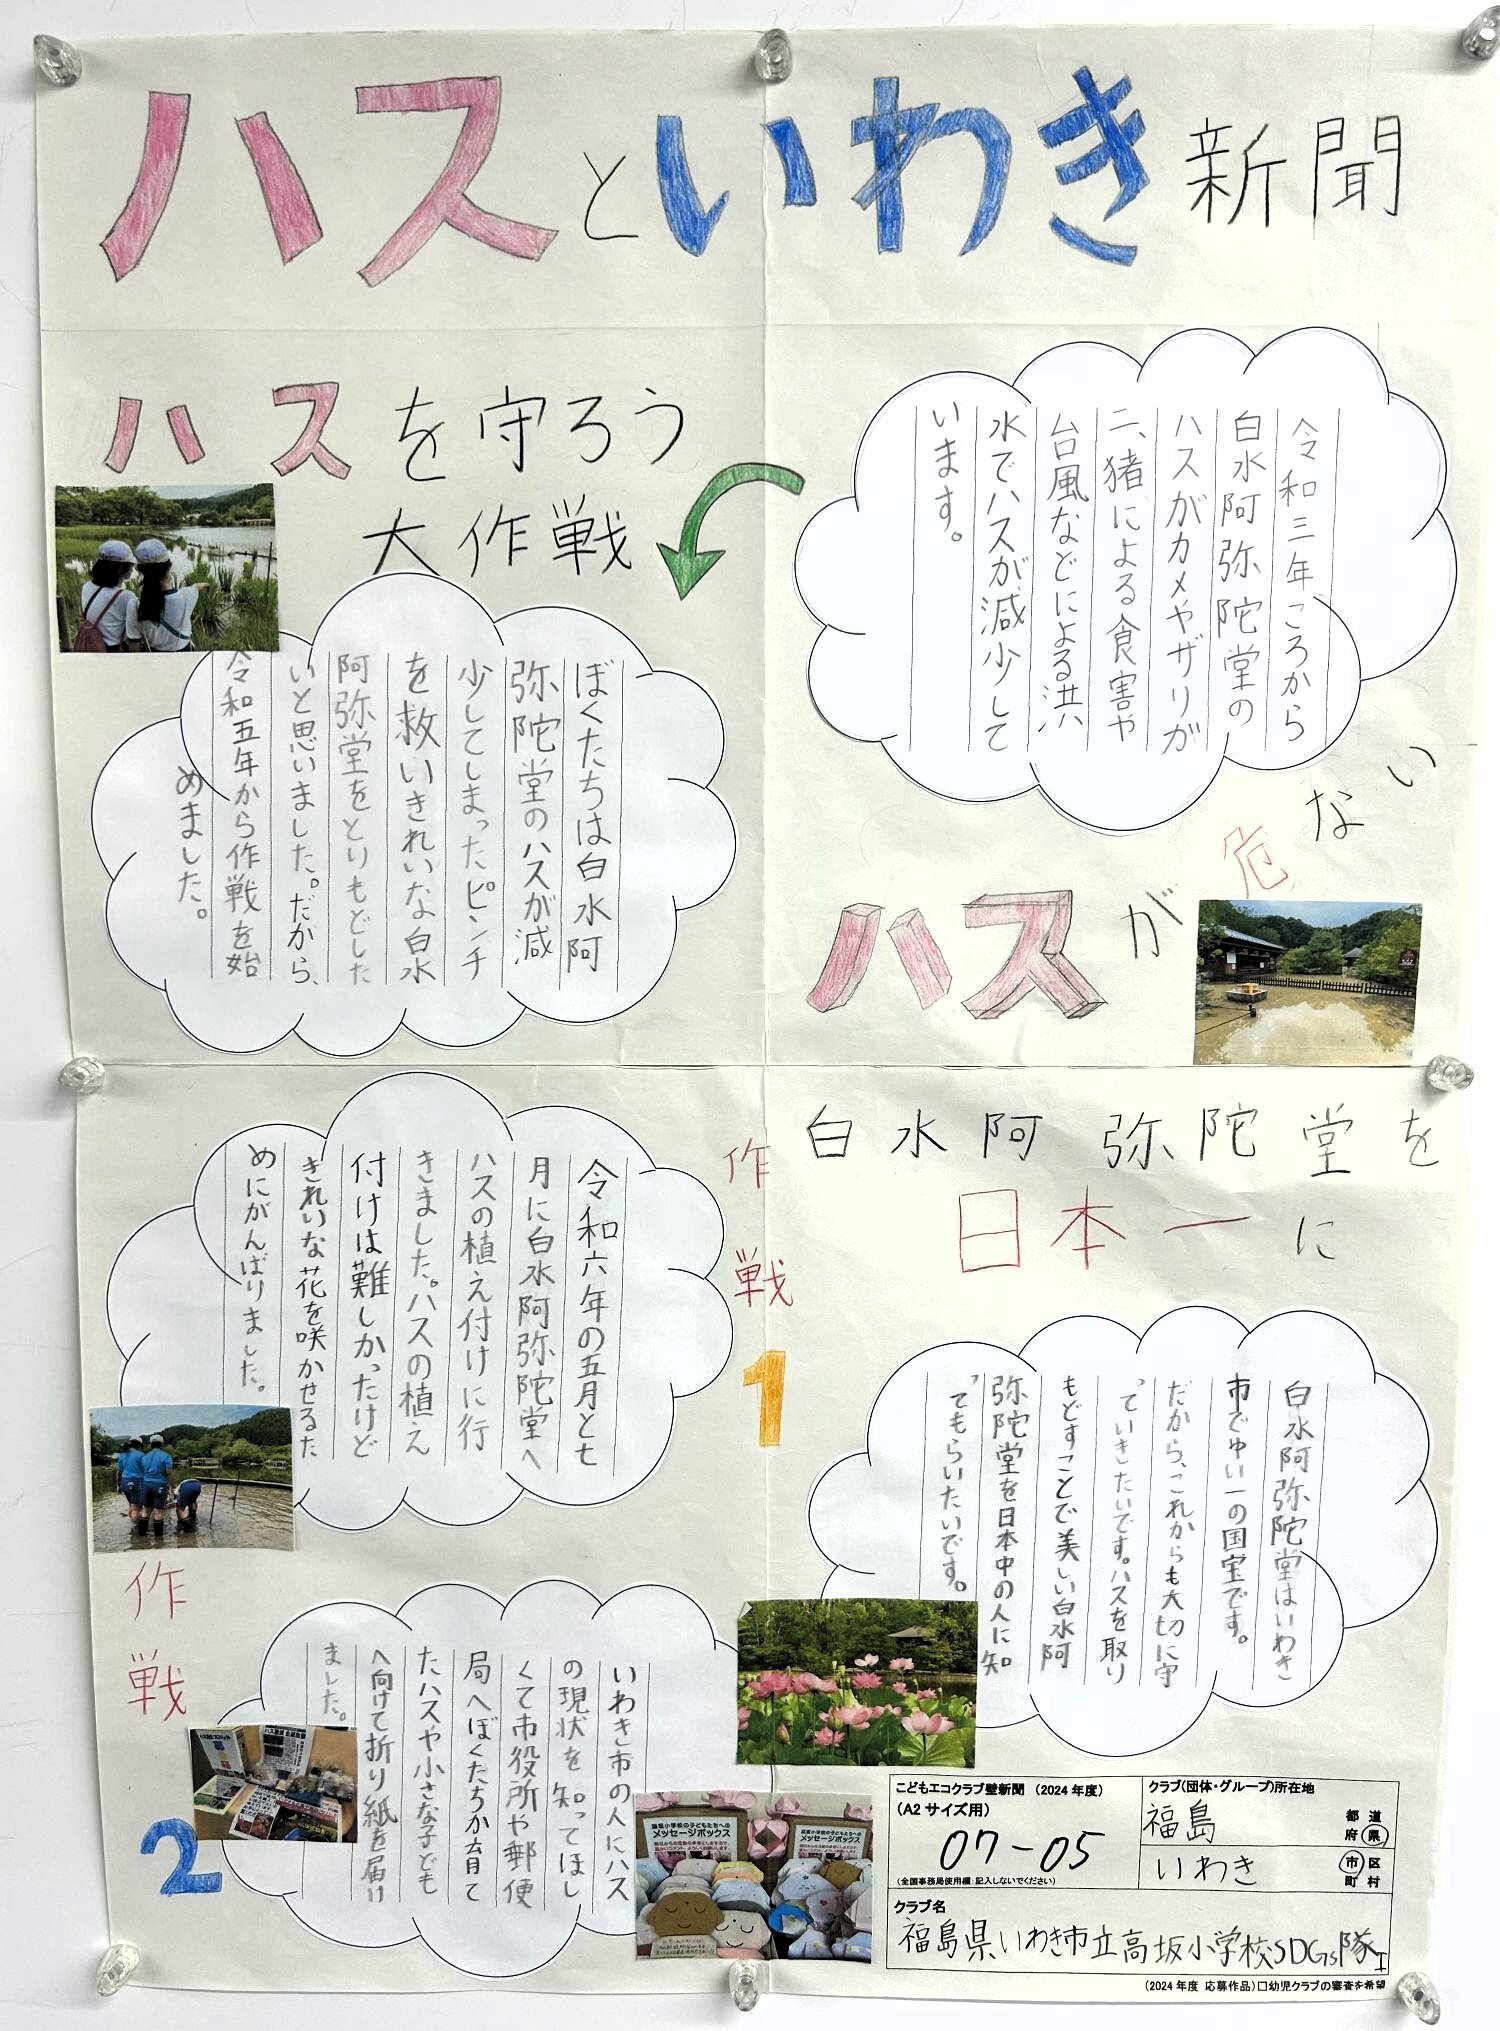 ハスといわき新聞
令和三年ころから
白水阿弥陀堂の
ハスがカメやザリガ
ニ、猪による食害や
台風などによる洪
水でハスが減少して
います。
ハスが危ない
ハスを守ろう
大作戦
ぼくたちは白水阿
弥陀堂のハスが減
少してしまったピンチ
を救いきれいな白水
阿弥堂をとりもどした
いと思いました。だから、
令和五年から作戦を始
めました。
白水阿弥陀堂を
日本一に
白水阿弥陀堂はいわき
市でゆい一の国宝です。
だから、これからも大切に守
っていきたいです。ハスを取り
もどすことで美しい白水阿
弥陀堂を日本中の人に知
ってもらいたいです。
作戦1
令和六年の五月と七
月に白水阿弥陀堂へ
ハスの植え付けに行
きました。ハスの植え
付けは難しかったけど
きれいな花を咲かせるた
めにがんばりました。
作戦2
いわき市の人にハス
の現状を知ってほし
くて市役所や郵便
局へぼくたちが育て
たハスや小さな子ども
へ向けて折り紙を届け
ました。
高坂小学校の子どもたちへの
メッセージボックス
高坂小学校の子どもたちへの
メッセージボックス
こどもエコクラブ壁新聞（2024年度）
（A2サイズ用）
07-05
（全国事務局使用欄：記入しないでください）
クラブ（団体・グループ）所在地
福島 都道府県
いわき 市区町村
クラブ名
福島県いわき市立高坂小学校SDGs隊I
（2024年度 応募作品）□幼児クラブの審査を希望